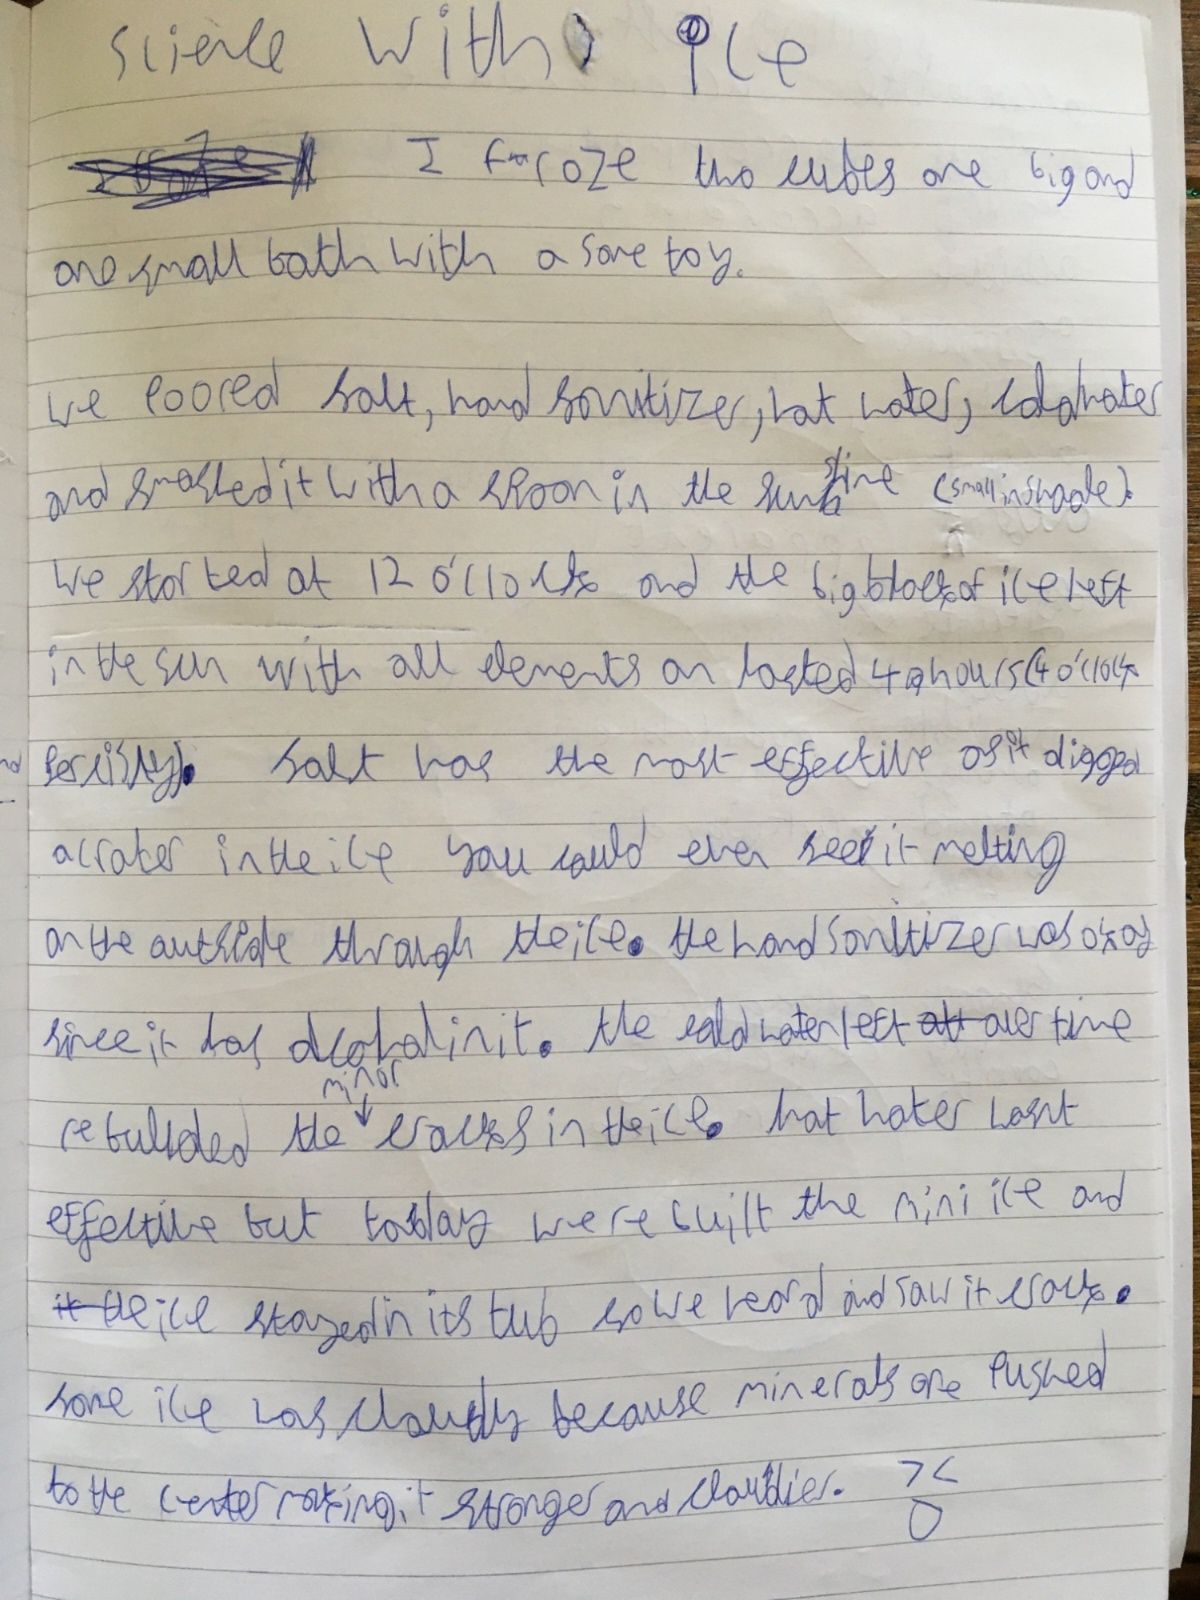 science with ice
I froze two cubes one big and
one small both with a some toy.
we poored salt, hand sonitizer, hot water, cold water
and smashed it with a spoon in the sunshine (small in shade).
we started at 12 o'clock and the big block of ice left
in the sun with all elements on lasted 4 hours (4 o'clock
Salt was the most effective as it digged
a crater in the ice you could even see it melting
on the outside through the ice. the hand sonitizer was okay
since it has alcohol in it. the cold water left over time
rebuilded the minor cracks in the ice. hot water wasnt
effective but today we rebuilt the mini ice and
the ice stayed in its tub so we heard and saw it crack.
some ice was cloudy because minerals are pushed
to the center making it stronger and cloudier. ><
nd